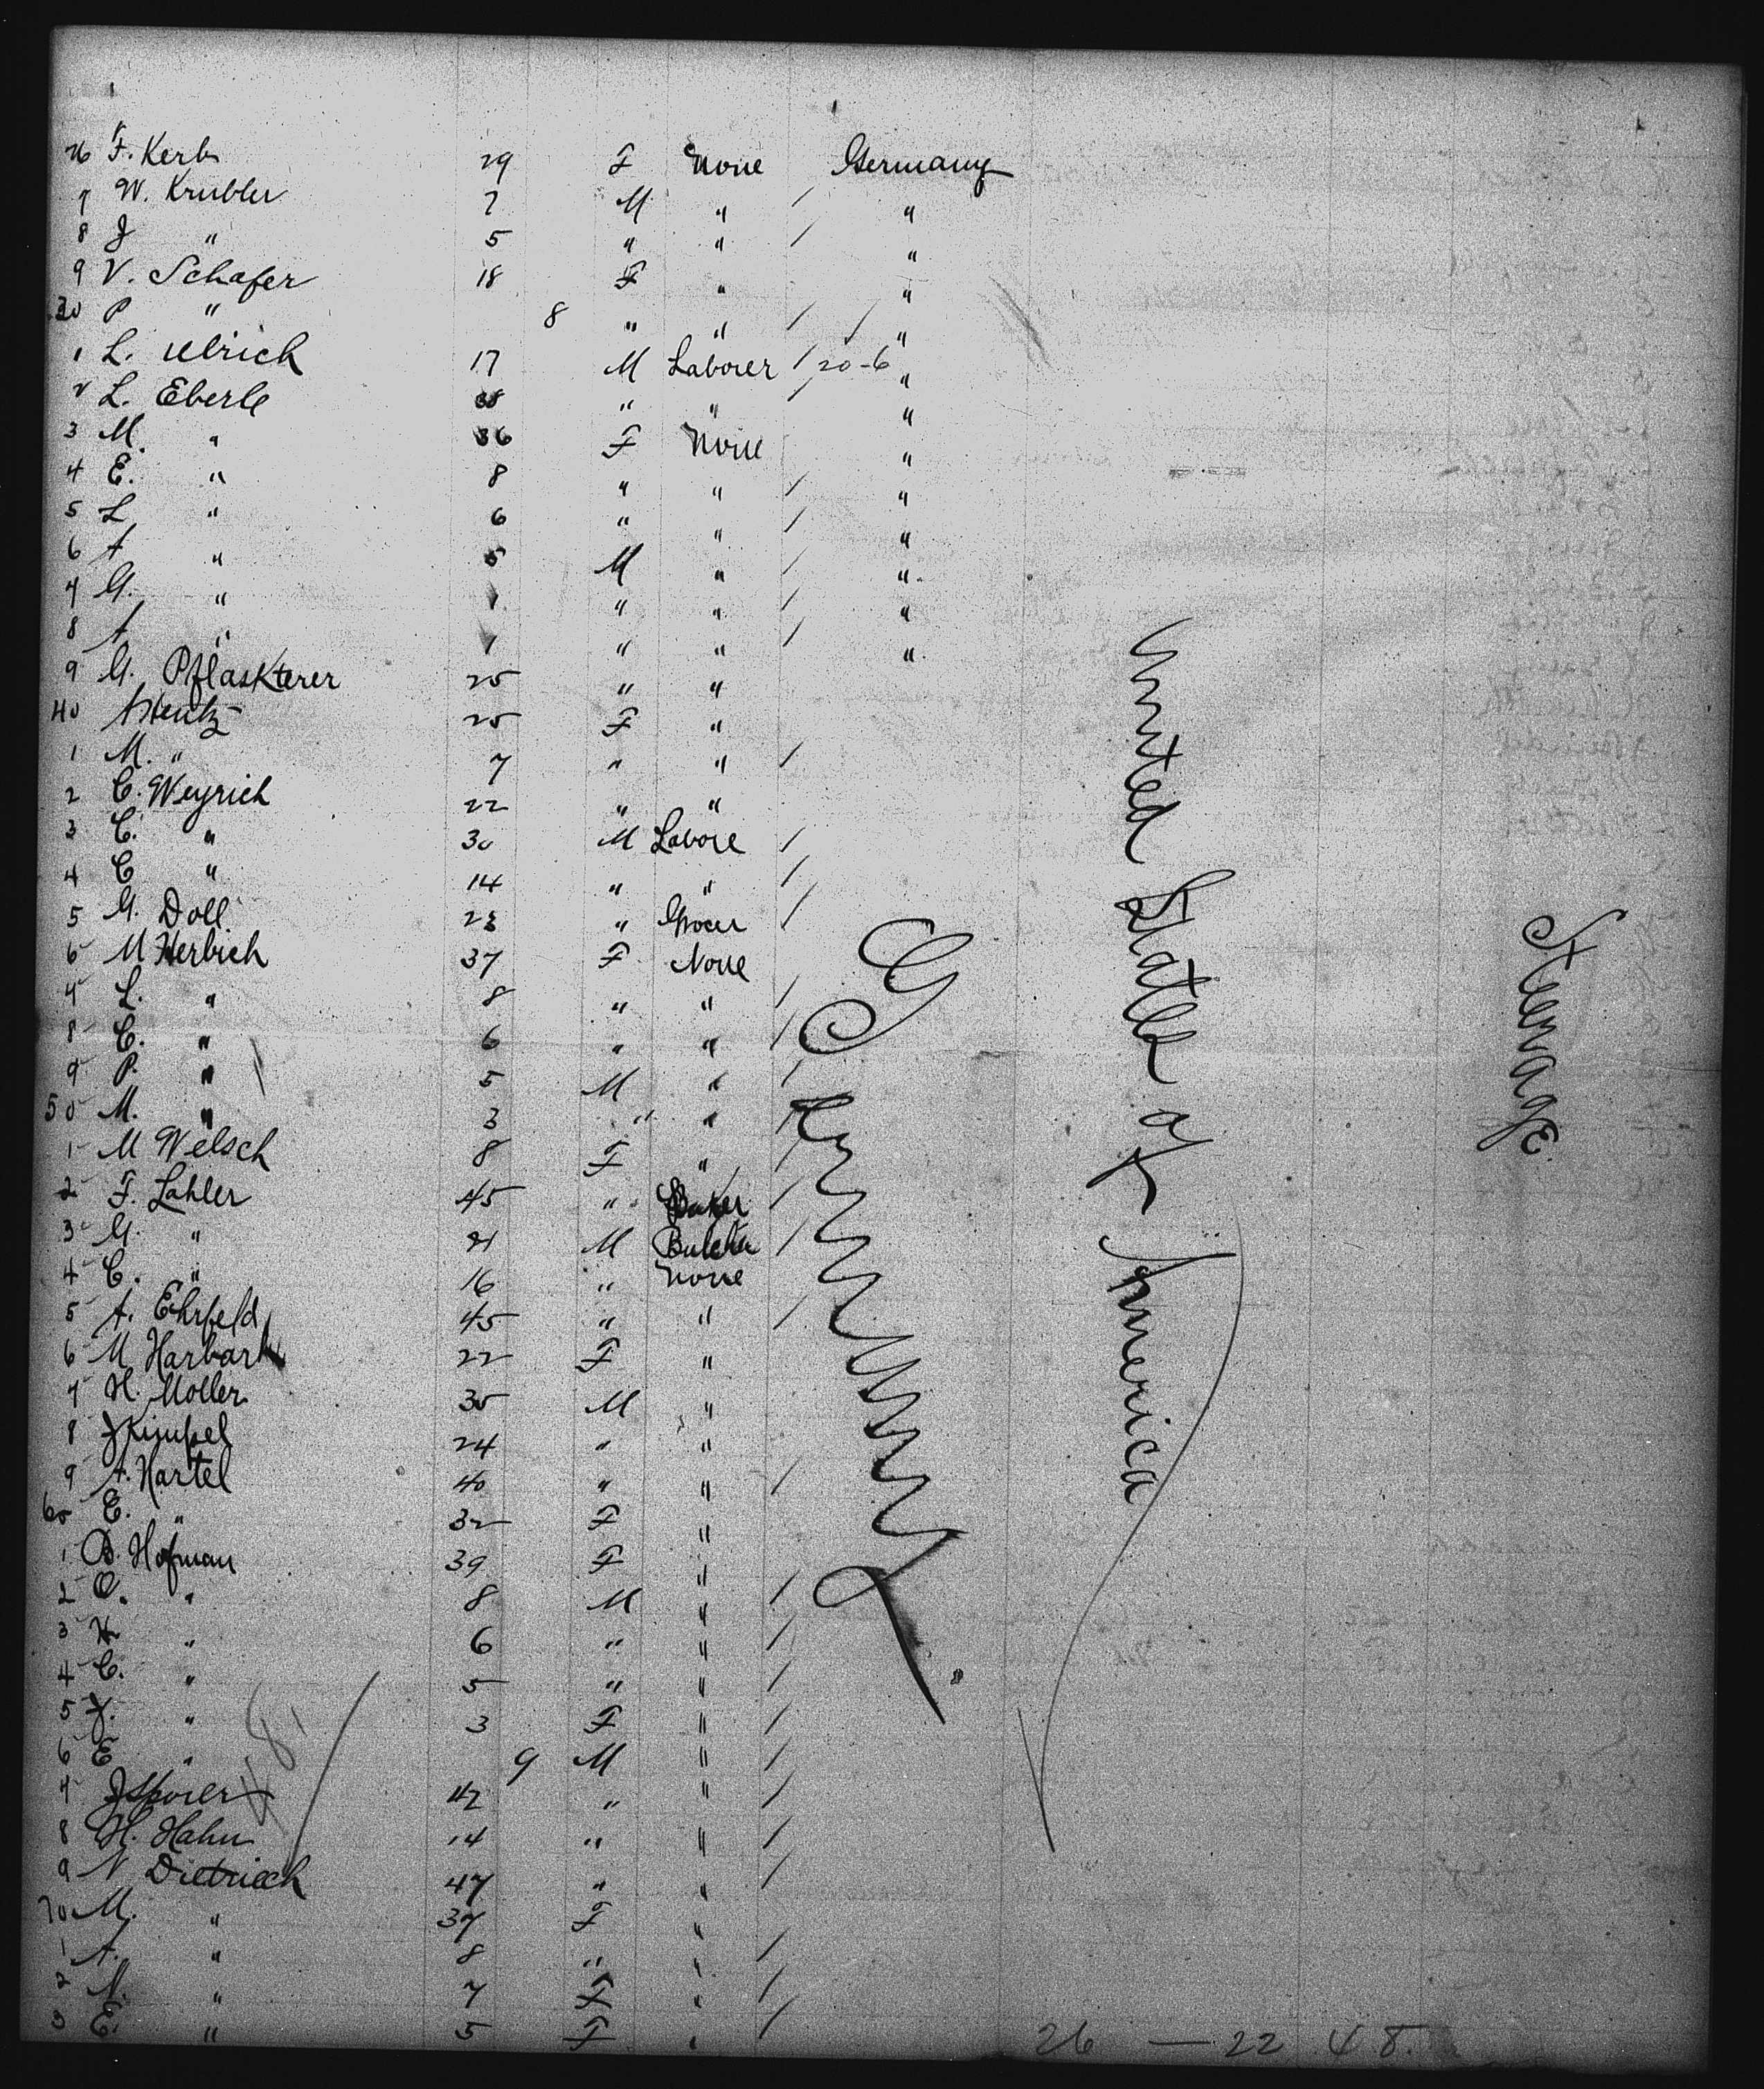 26 F. Kerb 29 F None Germany
7 W. Krubler 7 M " / "
8 J " 5 " " / "
9 V. Schafer 18 F " "
30 P " 8 " " / / "
1 L. Ulrich 17 M Laborer / 20-6 "
2 L. Eberle 38 " " / "
3 M. " 36 F None "
4 E. " 8 " " / "
5 L " 6 " " / "
6 A " 5 M " / "
7 G. " 1 " " / "
8 A " 1 " " / "
9 G. Pflasterer 25 " "
40 A Hentz 25 F "
1 M. " 7 " " /
2 C. Weyrich 22 " "
3 C. " 30 M Labore /
4 C " 14 " " /
5 G. Doll 23 " Grocer /
6 M Herbich 37 F None
7 L. " 8 " " /
8 C. " 6 " " /
9 P. " 5 M " /
50 M. " 3 " " /
1 M Welsch 8 F " /
2 F. Lahler 45 " Baker /
3 G. " 21 M Butcher /
4 C. " 16 " None
5 A. Ehrfeld 45 " " /
6 M Harbarth 22 F "
7 H. Moller 35 M "
8 J Kimpel 24 " "
9 A. Hartel 40 " " /
60 E. " 32 F "
1 B. Hofman 39 F "
2 O. " 8 M " /
3 H " 6 " " /
4 C. " 5 " " /
5 J. " 3 F " /
6 E " 9 M " /
7 J 42 " " /
8 H. Hahn 14 " " /
9 N Dietriech 47 " " /
70 M. " 37 F "
1 A. " 8 " " /
2 N. " 7 F " /
3 E. " 5 F " /
Germany.
United States of America
Steerage.
26 — 22 48.